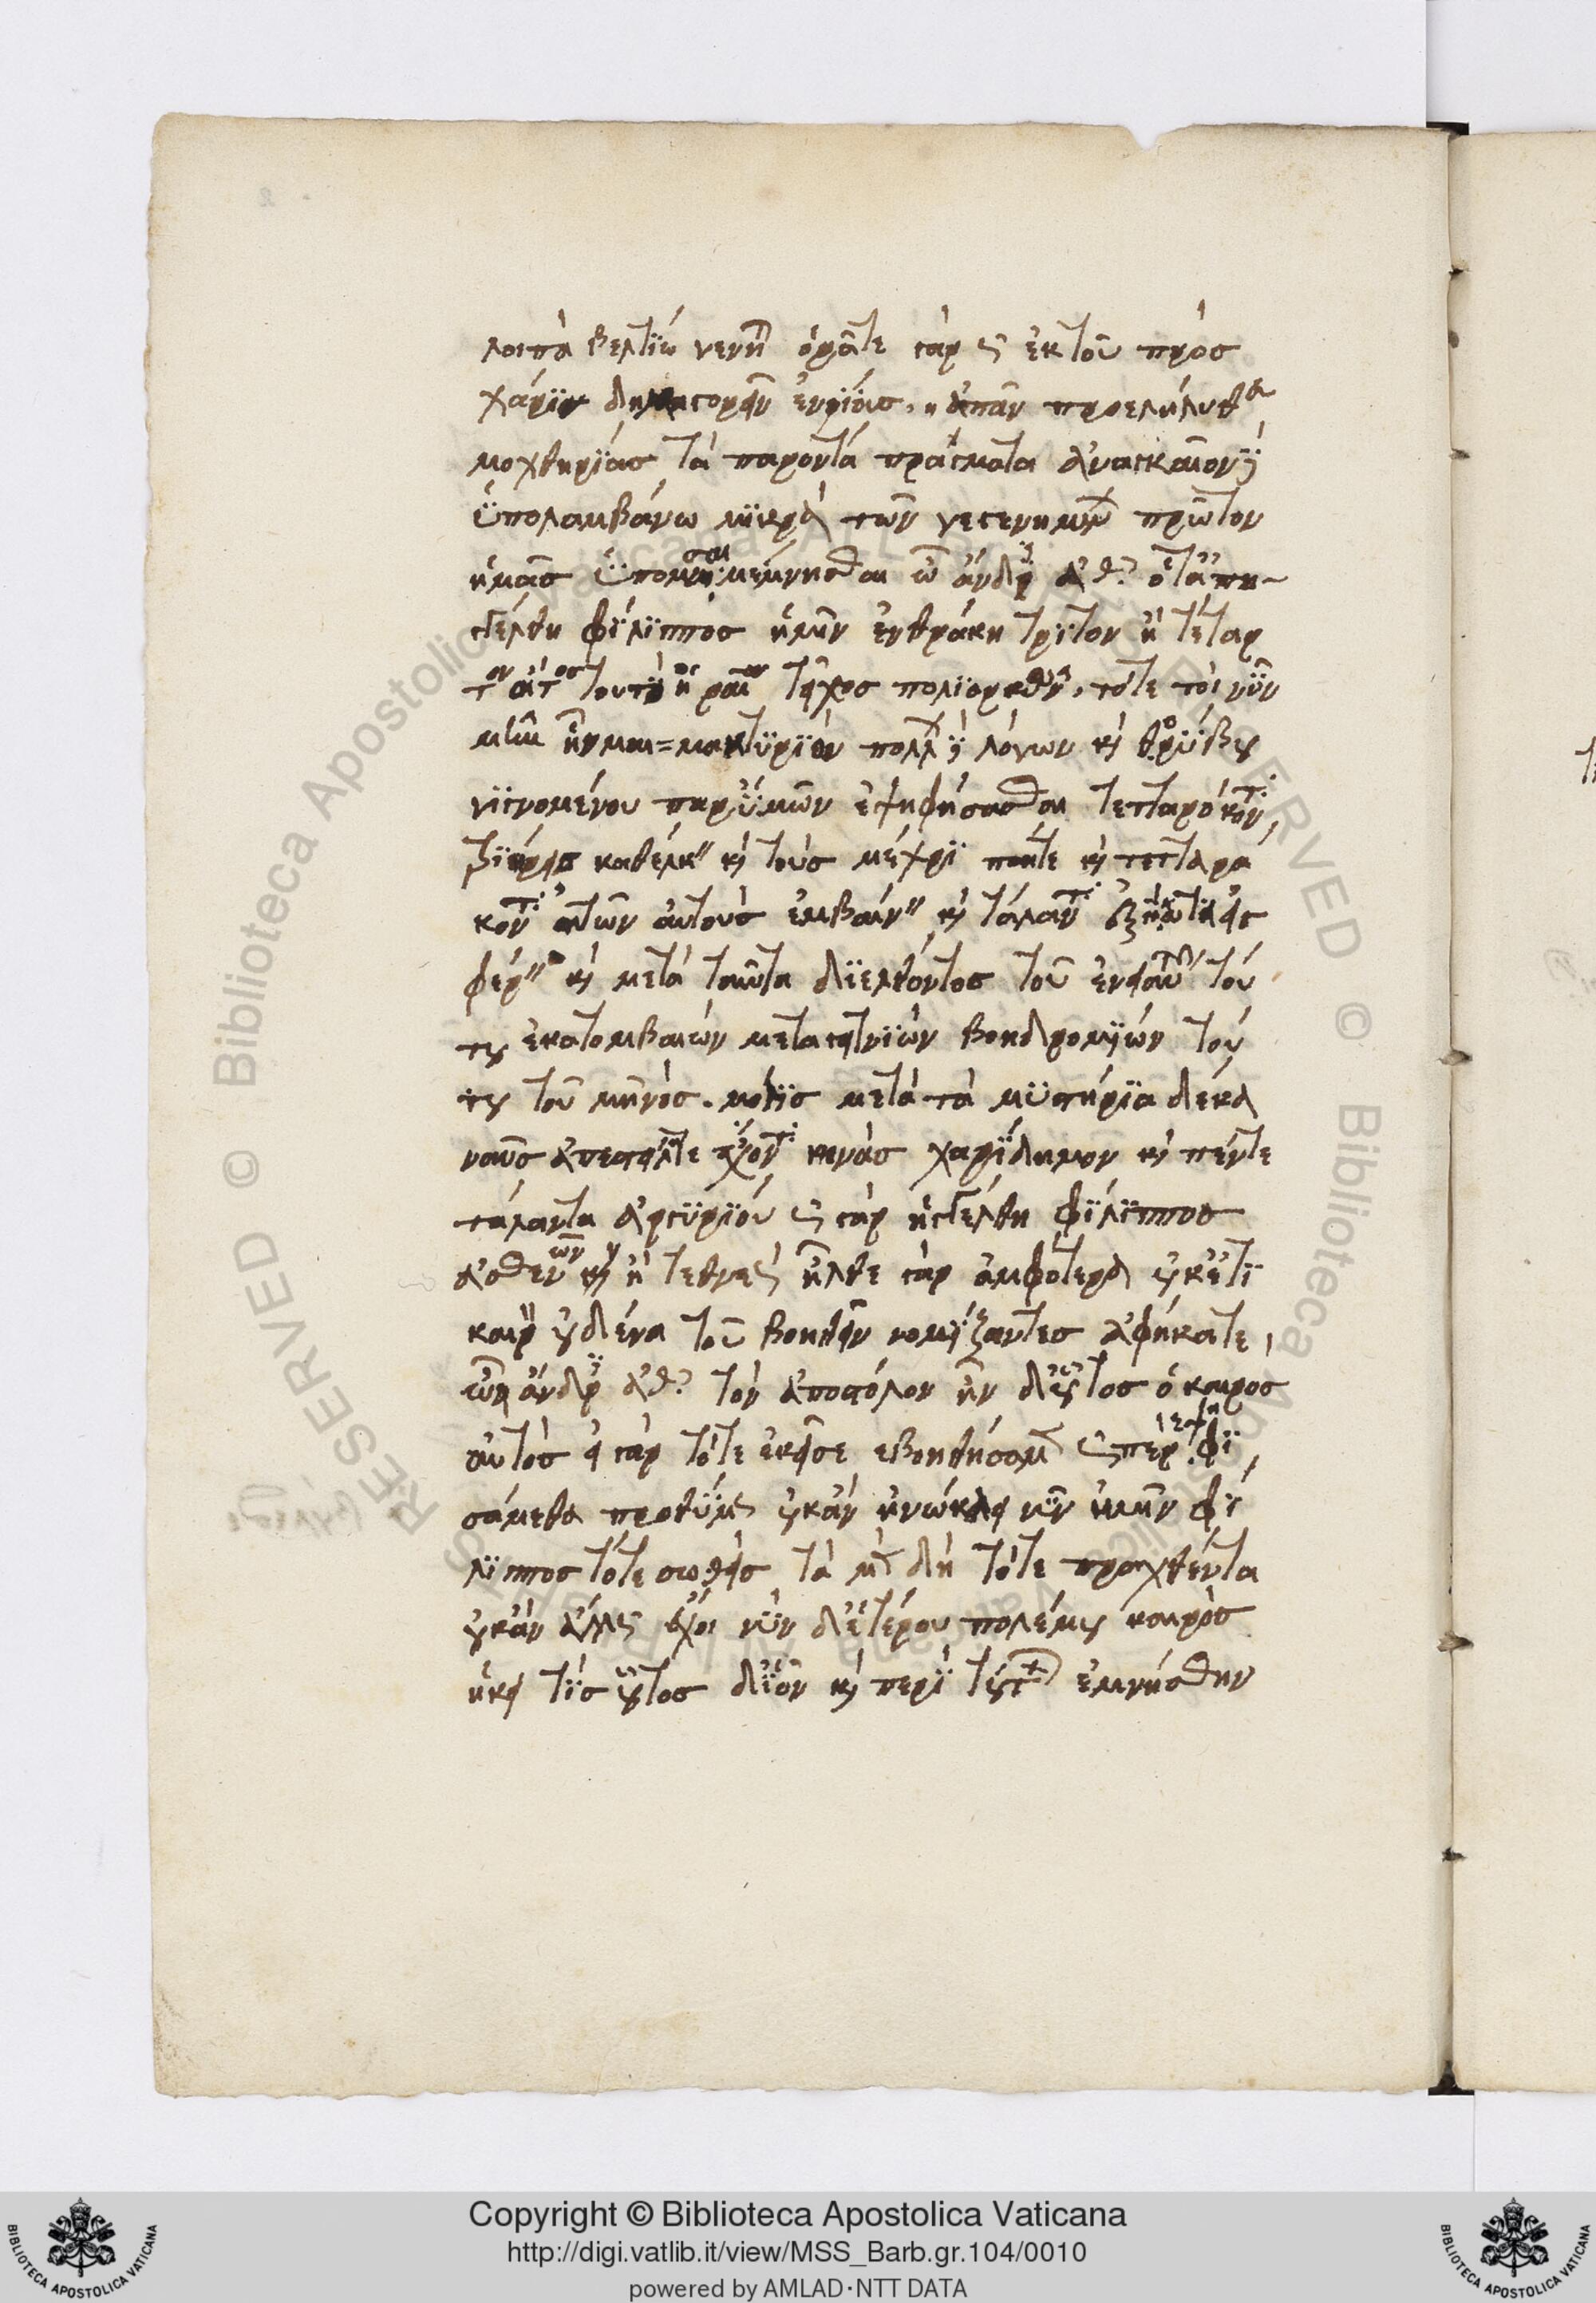 λοιπὰ βελτίω γενη̃ ὁρᾶτε γὰρ ὡς ἐκ τοῦ πρὸσ
χάριν δημηγορεῖν ἐνρίοισ, εἰσ πᾶν προεληλυθε
μοχθηρίασ τὰ παροντὰ πράγματα ἀναγκαῖον ϊ
ὑπολαμβάνω μϊκρὰ τῶν γεγενημεν πρῶτον
ἡμᾶσ ὑπομνησαι μέμνησθαι ὦ ἄνδρ ἀθ ὅτ ἀπη-
γγέλθη φίλϊπποσ ἡμῖν ἐν θράκη τρϊτον ἢ τέταρ
τον ἔτοσ τουτὶ ἡραῖον τεῖχοσ πολϊορκῶν, τότε τοι νῦν
μὴν ἦν μαιμακτϋρϊὼν πολλῶν λόγων κὶ θορύβου
γϊγνομένου παρ ὑμῶν ἐψηφήσασθαι τετταράκοντ
τρϊήρεισ καθέλκειν κὶ τοὺσ μέχρϊ πέντε κὶ τετταρά
κοντ ἐτῶν ἀυτοὺσ ἐμβαίνειν κὶ τάλαντ ἑξήκοντα εἰσ
φέρειν κὶ μετὰ ταῦτα διελθόντοσ τοῦ ἐνϊαυτοῦ τού
του ἑκατομβαιὼν μεταγειτνϊὼν βοηδρομϊὼν τού
του τοῦ μηνὸσ. μόλϊσ μετὰ τὰ μϋστήρϊα δέκα
ναῦσ ἀπεστείλατε ἔχοντ κενὰσ χαρίδημον κὶ πέντε
τάλαντα ἀργϋρϊού ὡς γὰρ ἠγγέλθη φϊλϊπποσ
ἀσθενῶν κὶ ἢ τεθνεὼς ἦλθε γὰρ ἀμφότερα οὐκέτϊ
καιρὸν οὐδένα τοῦ βοηθεῖν νομϊζαντεσ ἀφήκατε,
ὦ ἄνδρ ἀθ τὸν ἀποστόλον ἦν δ οὗτοσ ὁ καιροσ
ἀυτὸσ εἰ γὰρ τότε ἐκεῖσε ἐβοηθήσαμεν ὥσπερ ἐψηφϊ,
σάμεθα προθύμως οὐκ ἂν ἠνώχλει νῦν ἡμῖν φί
λϊπποσ τότε σωθεὶσ τὰ μὲν δὴ τότε πραχθέντα
οὐκ ἂν ἄλλως ἔχοι νῦν δ ἑτέρου πολέμου καιρὸσ
ἥκει τὶσ οὗτοσ δϊ ὃν κὶ περὶ τούτων ἐμνήσθην
Copyright © Biblioteca Apostolica Vaticana
http://digi.vatlib.it/view/MSS_Barb.gr.104/0010
powered by AMLAD·NTT DATA